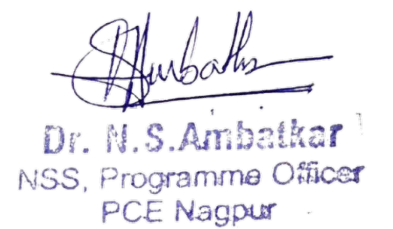 Dr. N.S.Ambatkar
NSS, Programme Officer
PCE Nagpur